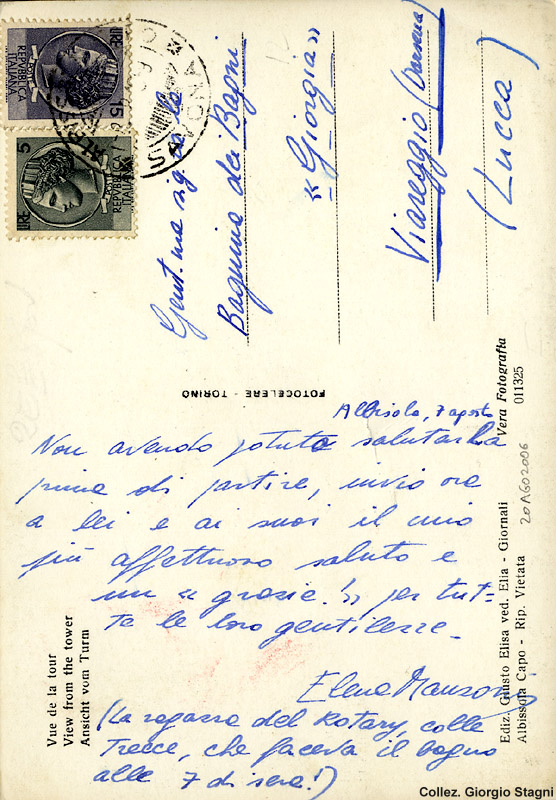 LIRE 15
POSTE
REPVBBLICA
ITALIANA
LIRE 5
POSTE
REPVBBLICA
ITALIANA
Gent.ma sig.ra la
Bagnina dei Bagni
"Giorgia"
Viareggio (Darsena)
(Lucca)
FOTOCELERE - TORINO
Albisola, 7 agosto
Non avendo potuto salutarla
prima di partire, invio ora
a lei e ai suoi il mio
più affettuoso saluto e
un « grazie! » per tut-
te le loro gentilezze.
Elena Manzoni
(La ragazza del Rotary, colle
trecce, che faceva il bagno
alle 7 di sera!)
Vue de la tour
View from the tower
Ansicht vom Turm
Ediz. Giusto Elisa ved. Elia - Giornali
Albissola Capo - Rip. Vietata
20 AGO 2006
Vera Fotografia
011325
Collez. Giorgio Stagni